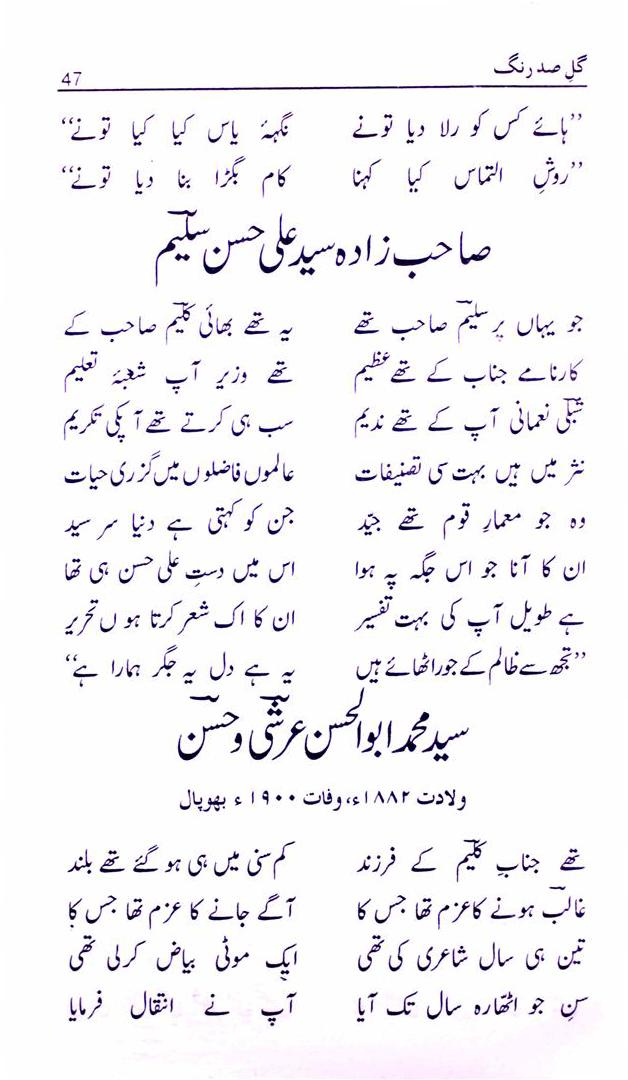 گلِ صد رنگ
47
”ہائے کس کو رلا دیا تونے نگہۂ یاس کیا کیا تونے“
”روشِ التماس کیا کہنا کام بگڑا بنا دیا تونے“
صاحب زادہ سید علی حسن سلیم
جو یہاں پر سلیم صاحب تھے یہ تھے بھائی کلیم صاحب کے
کارنامے جناب کے تھے عظیم تھے وزیر آپ شعبۂ تعلیم
شبلی نعمانی آپ کے تھے ندیم سب ہی کرتے تھے آپکی تکریم
نثر میں ہیں بہت سی تصنیفات عالموں فاضلوں میں گزری حیات
وہ جو معمارِ قوم تھے جیّد جن کو کہتی ہے دنیا سر سید
ان کا آنا جو اس جگہ پہ ہوا اس میں دستِ علی حسن ہی تھا
ہے طویل آپ کی بہت تفسیر ان کا اک شعر کرتا ہوں تحریر
”تجھ سے ظالم کے جور اٹھائے ہیں یہ ہے دل یہ جگر ہمارا ہے“
سید محمد ابوالحسن عرشی و حسن
ولادت ۱۸۸۲ء، وفات ۱۹۰۰ء بھوپال
تھے جنابِ کلیم کے فرزند کم سنی میں ہی ہو گئے تھے بلند
غالب ہونے کا عزم تھا جس کا آگے جانے کا عزم تھا جس کا
تین ہی سال شاعری کی تھی ایک موٹی بیاض کرلی تھی
سنِ جو اٹھّارہ سال تک آیا آپ نے انتقال فرمایا